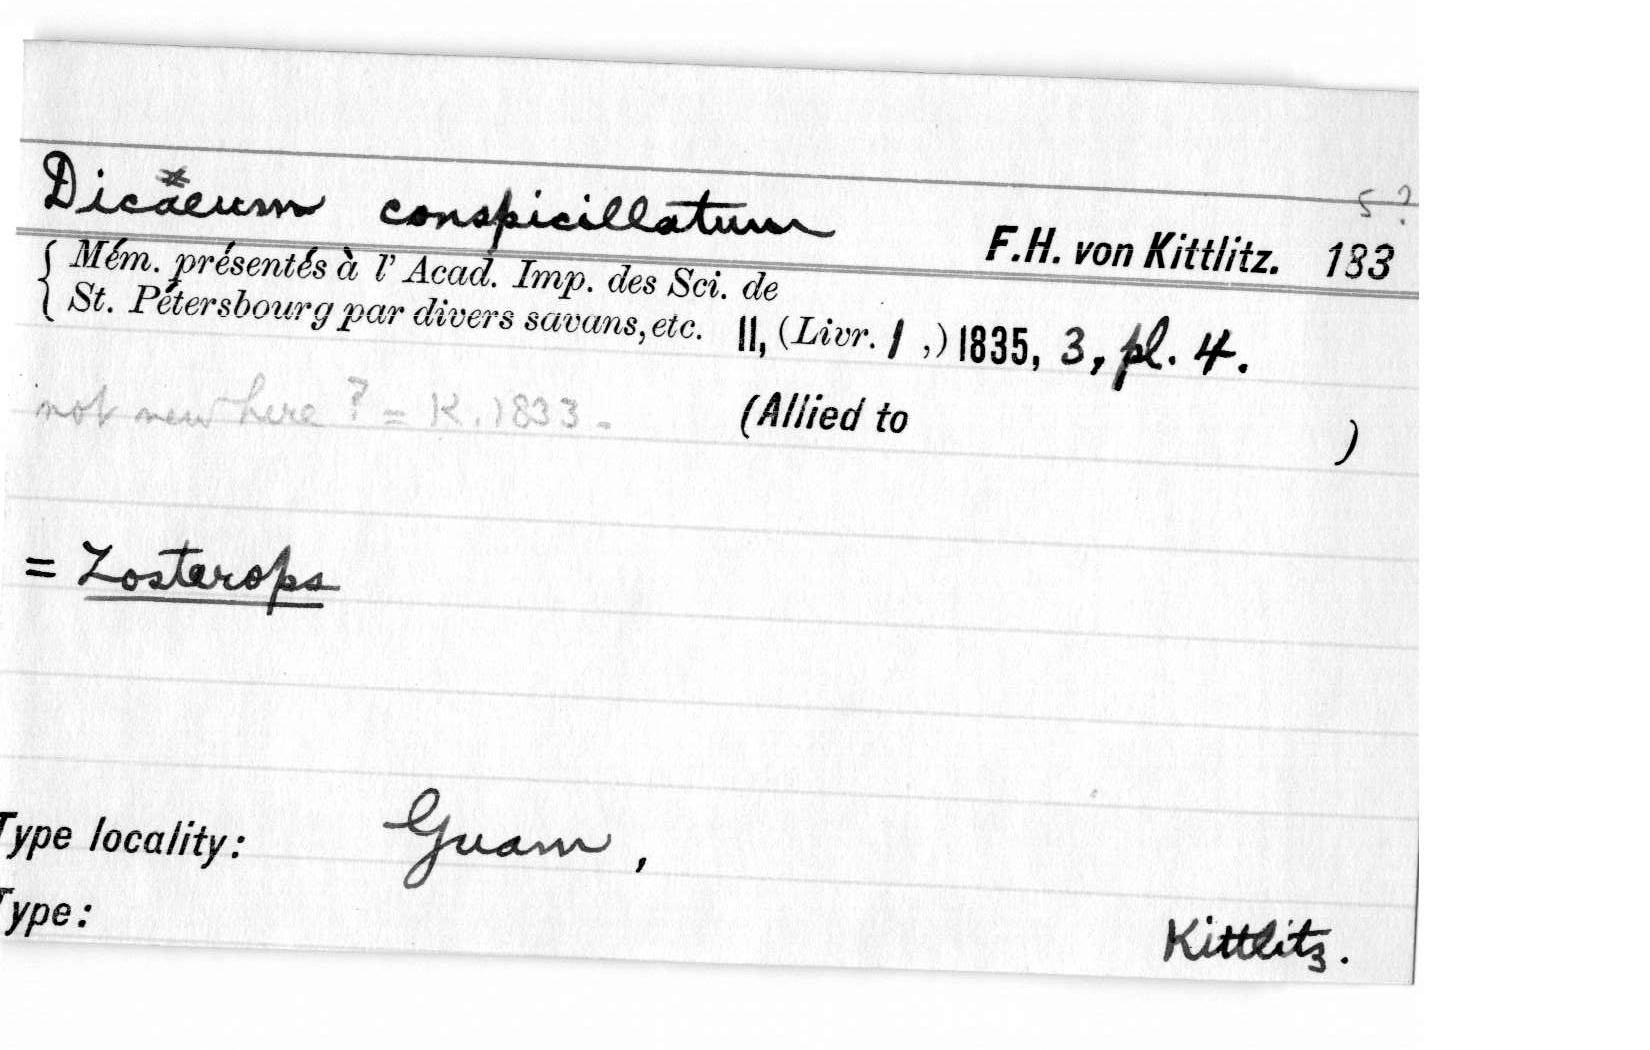 5?
Dicäeum conspicillatum F.H. von Kittlitz. 183
{ Mém. présentés à l' Acad. Imp. des Sci. de
St. Pétersbourg par divers savans, etc. II, (Livr. 1 ,) 1835, 3, pl. 4.
not new here? = K. 1833. (Allied to )
= Zosterops
Type locality: Guam,
Type: Kittlitz.